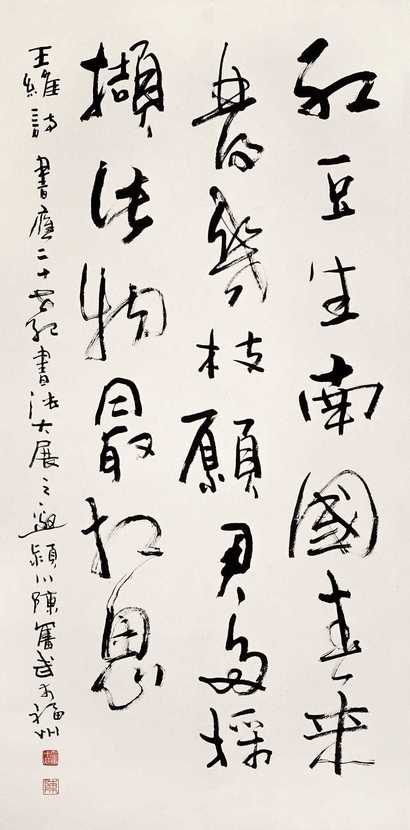 紅豆生南國春来
發幾枝願君多採
擷此物最相思
王維詩 書應二十世紀書法大展之邀 潁川陳奮武於福州